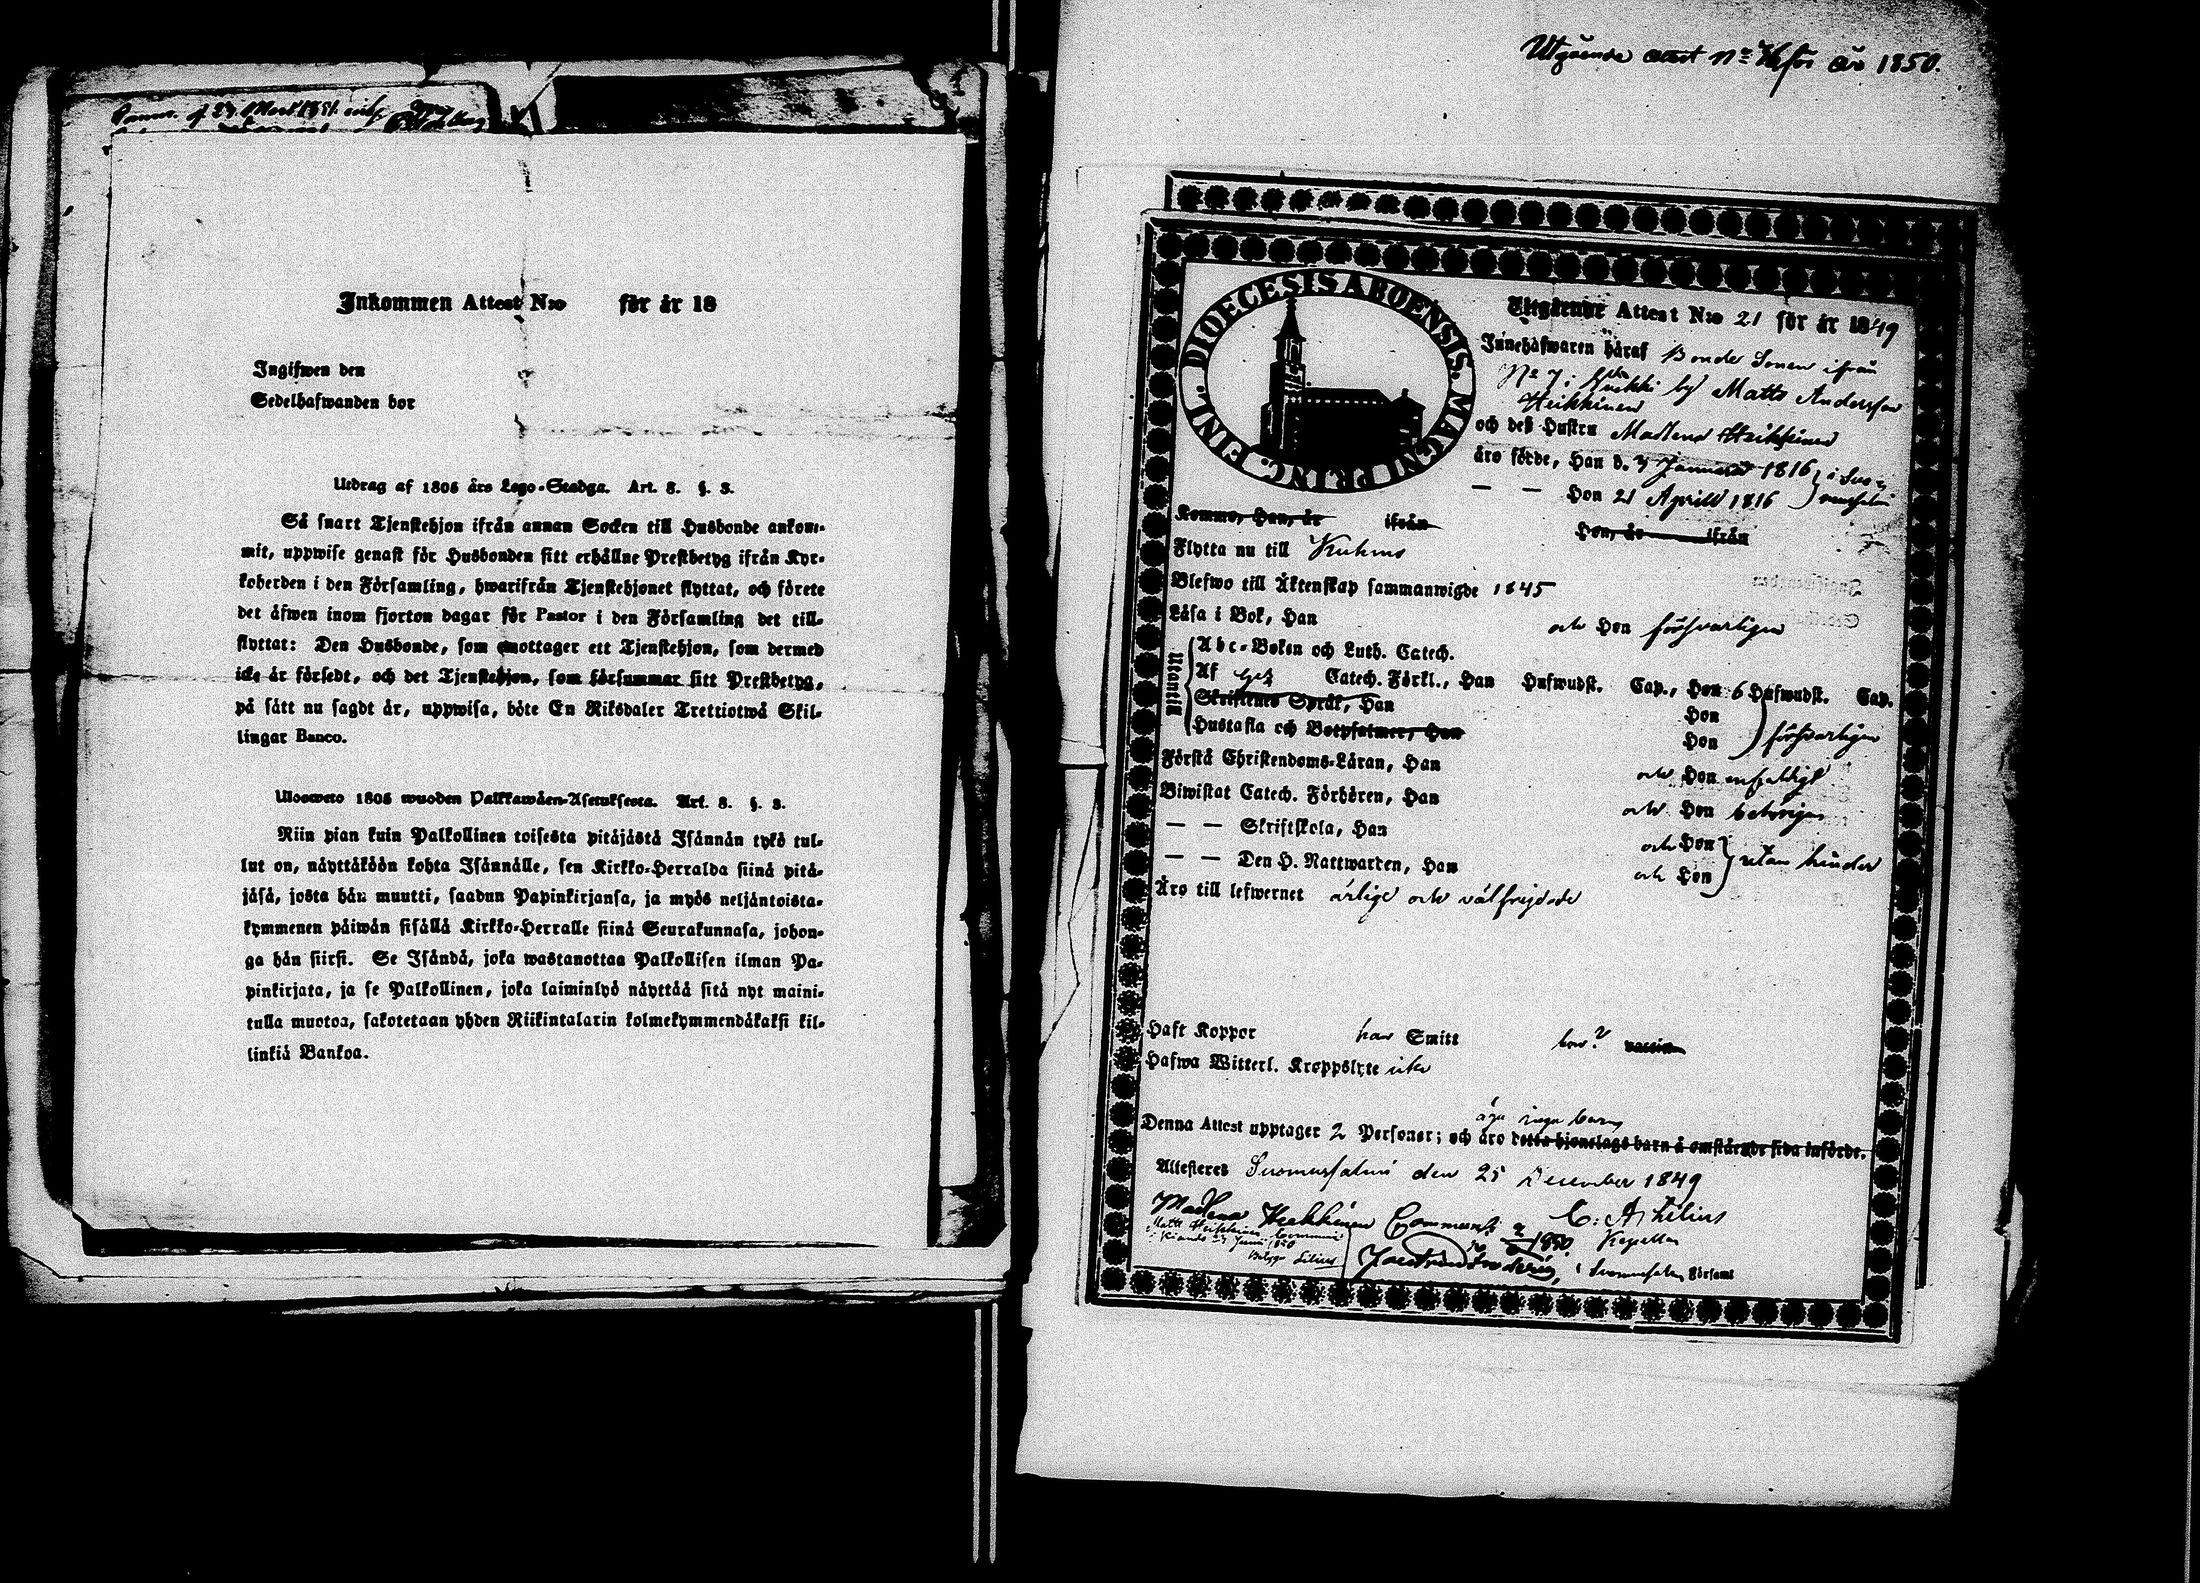 Inkommen Attest N:o för år 18
Ingifwen den
Sedelhafwanden bor
Utdrag af 1805 års Lego-Stadga. Art. 8. §. 3.
Så snart Tjenstehjon ifrån annan Socken till Husbonde ankom-
mit, uppwise genast för Husbonden sitt erhållne Prestbetyg ifrån Kyr-
koherden i den Församling, hwarifrån Tjenstehjonet flyttat, och förete
det äfwen inom fjorton dagar för Pastor i den Församling det till-
flyttat: Den Husbonde, som emottager ett Tjenstehjon, som dermed
icke är försedt, och det Tjenstehjon, som försummar sitt Prestbetyg,
på sätt nu sagdt är, uppwisa, böte En Riksdaler Trettiotwå Skil-
lingar Banco.
Ulosweto 1805 wuoden Palkkawäen-Asetuksesta. Art. 8. §. 3.
Niin pian kuin Palkollinen toisesta pitäjästä Isännän tykö tul-
lut on, näyttäköön kohta Isännälle, sen Kirkko-Herralda siinä pitä-
jäsä, josta hän muutti, saadun Papinkirjansa, ja myös neljäntoista-
kymmenen päiwän sisällä Kirkko-Herralle siinä Seurakunnasa, johon-
ga hän siirsi. Se Isändä, joka wastanottaa Palkollisen ilman Pa-
pinkirjata, ja se Palkollinen, joka laiminlyö näyttää sitä nyt maini-
tulla muotoa, sakotetaan yhden Riikintalarin kolmekymmendäkaksi kil-
linkiä Bankoa.
Utgående attest N:o för år 1850.
DIOECESIS ABOENSIS. MAGNI PRINC. FINL.
Utgående Attest N:o 21 för år 1849
Innehafwaren häraf Bonde Sonen ifrån
N:o 7 i by Matts Andersson
Heikkinen
och deß Hustru Madlena Heikkinen
äro födde, Han d. 3 Januarii 1816 i Suo-
— — Hon 21 Aprill 1816 mussalmi
Komne, Han, år ifrån Hon, år ifrån
Flytta nu till Kuhmo
Blefwo till Äktenskap sammanwigde 1845
Läsa i Bok, Han och Hon försvarligen
Utantill
Abc-Boken och Luth. Catech.
Af Catech. Förkl., Han Hufwudst. Cap., Hon 6 Hufwudst. Cap.
Skriftens Språk, Han Hon
Hustafla och Botpsalmer, Han Hon försvarligen
Förstå Christendoms-Läran, Han och Hon enfaldigt
Biwistat Catech. Förhören, Han och Hon behörigen
— — Skriftskola, Han och Hon
— — Den H. Nattwarden, Han och Hon utan hinder
Äro till lefwernet ärlige och välfrejdade
Haft Koppor han Smitt hon?
Hafwa Witterl. Kroppslyte icke
äga inga barn
Denna Attest upptager 2 Personer; och äro detta hjonelags barn å omstående sida införde.
Attesteres Suomussalmi den 25 December 1849
Madlena Heikkinen C: Athelius
Matts Heikkinen 1850 Kapellan
i Suomussalmi Församl